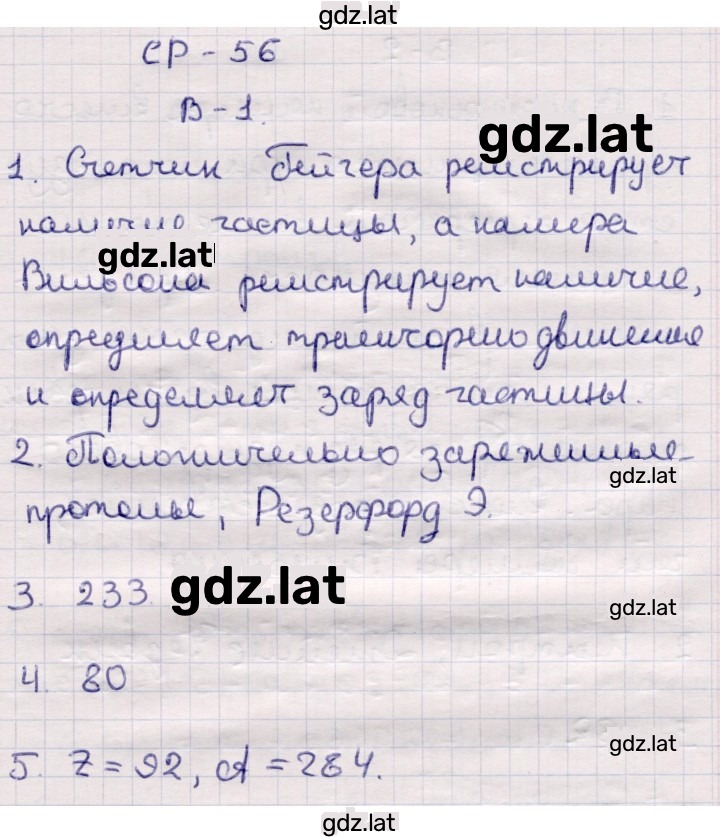 gdz.lat
СР - 56
В - 1.
gdz.lat
1. Счетчик Гейгера регистрирует
частицы, а камера
gdz.lat
Вильсона регистрирует наличие,
определяет траекторию движения
и определяет заряд частицы.
2. Положительно заряженные-
gdz.lat
протоны, Резерфорд Э.
3. 233 gdz.lat
gdz.lat
4. 80
gdz.lat
5. Z = 92, A = 234.
gdz.lat